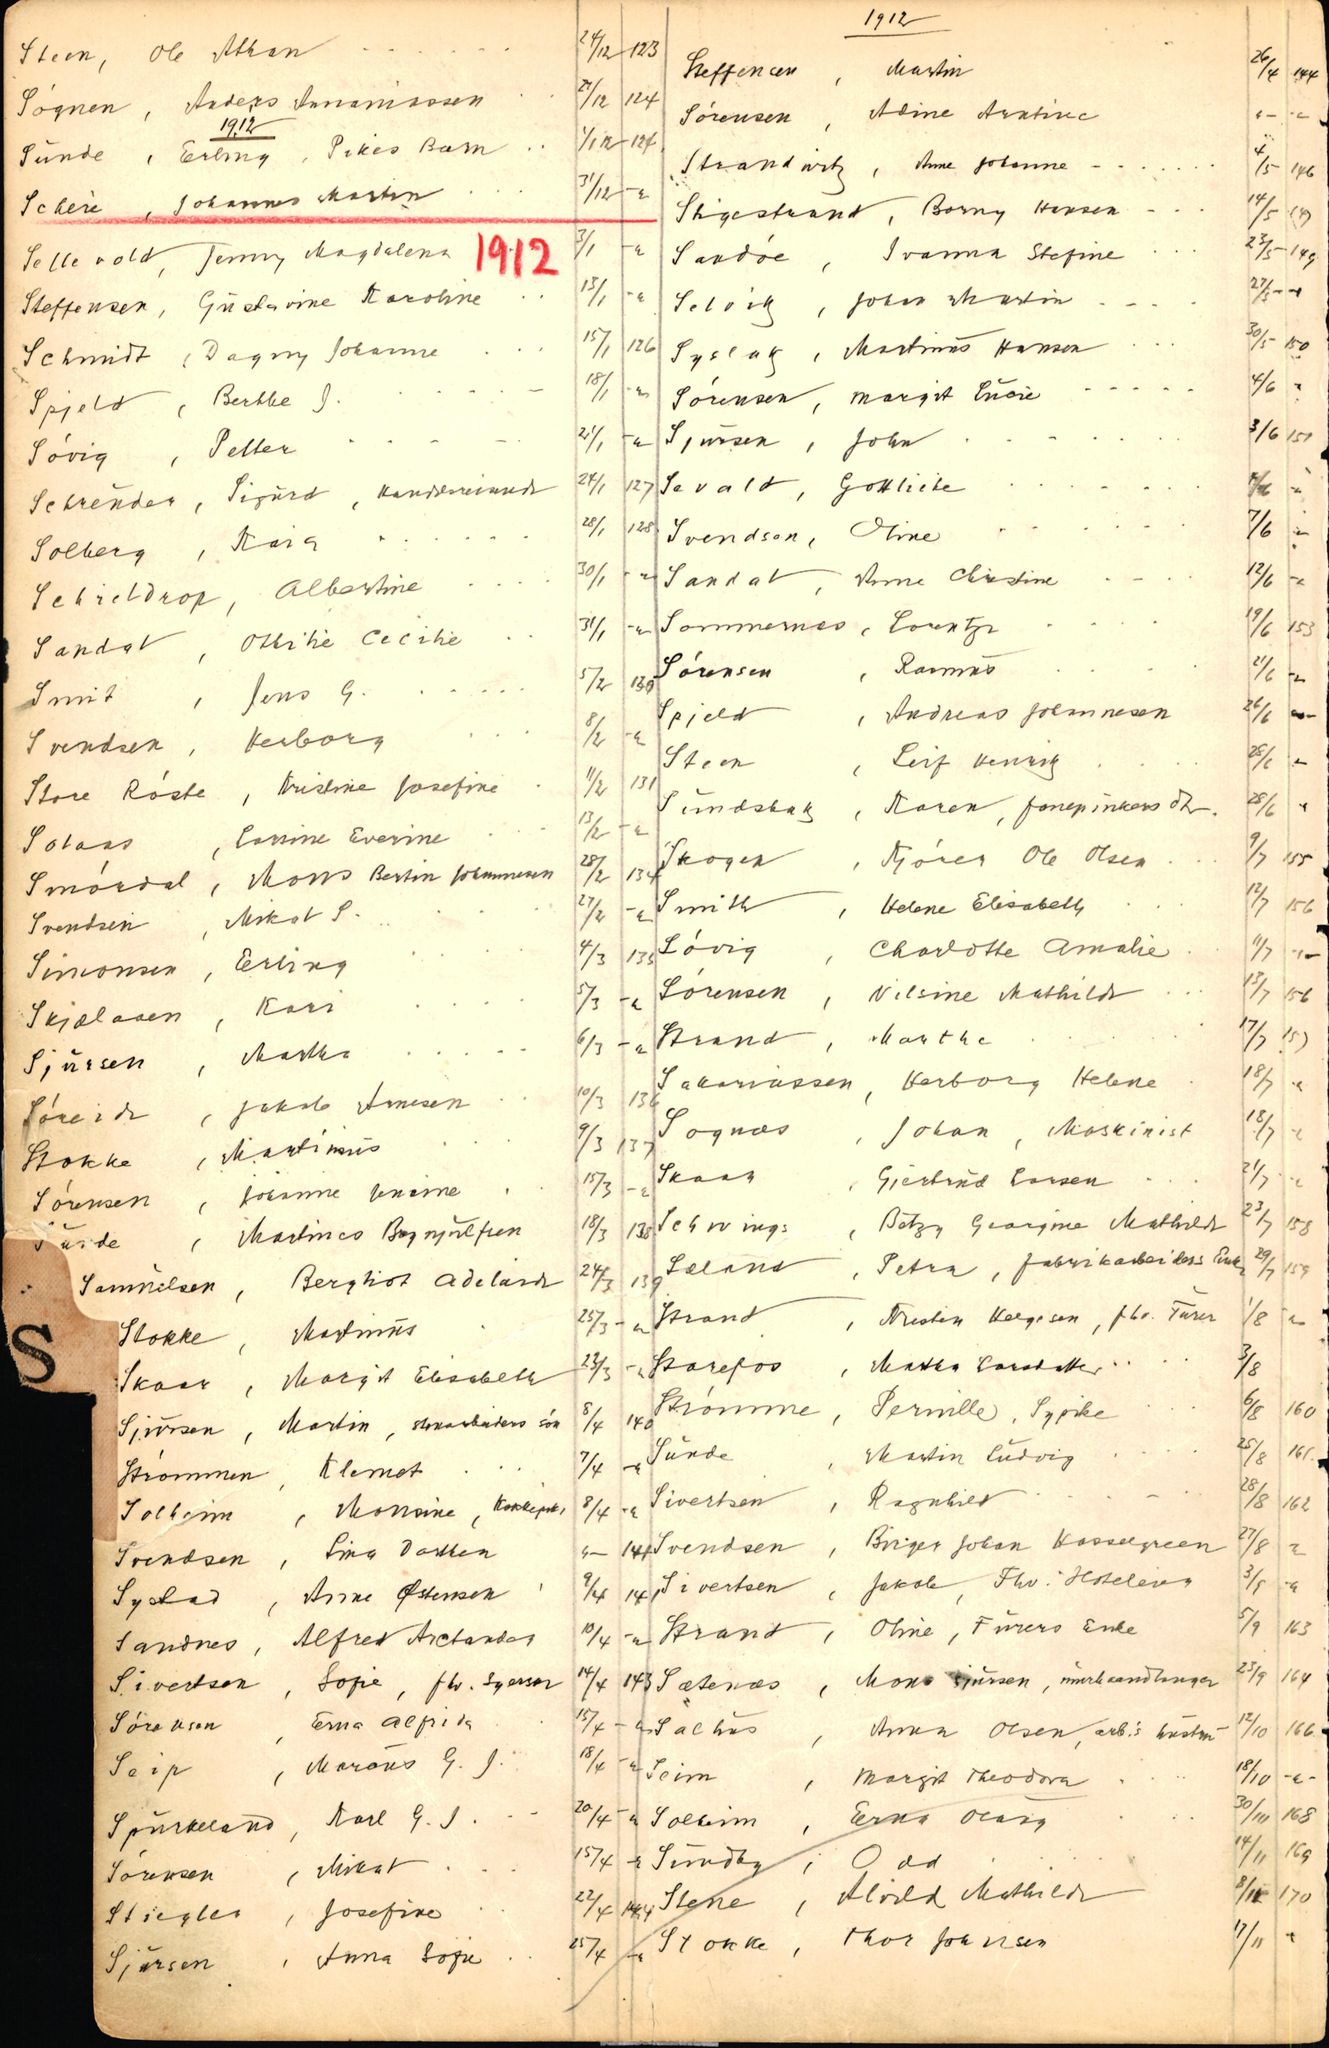 Steen, Ole Athan 24/12 123
Søgnen, Anders Annaniassen 24/12 124
1912
Sünde, Erling, Pikes Barn 1/12 124
Scheie, Johannes Martin 31/12 -"-
1912
Sellevold, Jenny Magdalena 3/1 -"-
Steffensen, Güstavine Karoline 13/1 -"-
Schmidt, Dagny Johanne 15/1 126
Spjeld, Berthe J. 18/1 -"-
Søvig, Petter 21/1 -"-
Schrøuder, Sigürd, 24/1 127
Solberg, Kaia 28/1 128
Schieldrop, Albertine 30/1 -"-
Sandal, Othilie Cecilie 31/1 -"-
Smit, Jens G. 5/2 130
Svendsen, Herborg 8/2 -"-
Store Røste, Kristine Josefine 11/2 131
Solaas, Everine 13/2 -"-
Smørdal, Mons Bertin Johannesen 28/2 134
Svendsen, Mikal S. 27/2 -"-
Simonsen, Erling 4/3 135
Skjælaaen, Kari 5/3 -"-
Sjürsen, Martha 6/3 -"-
Søreide, Jakob Arnesen 10/3 136
Stokke, Martinüs 9/3 137
Sørensen, Johanne 15/3 -"-
Sünde, Martines Brynjülfsen 18/3 138
Samüelsen, Bergliot Adelaide 24/3 139
Stokke, Martinüs 25/3 -"-
Skaar, Margit Elisabeth 23/3 -"-
Sjürsen, Martin, stenarbeiders søn 8/4 140
Strømmen, Klemet 7/4 -"-
Solheim, Monsine, 8/4 -"-
Svendsen, Lina "- 141
Systad, Anne Østensen 9/4 141
Sandnes, Alfred Arctander 10/4 -"-
Sivertsen, Sofie, fhv. Syerske 14/4 143
Sørensen, Erna Alfrida 15/4 -"-
Seip, Marcüs G. J. 18/4 -"-
Spürkeland, Karl G. J. 20/4 -"-
Sørensen, Mikal 15/4 -"-
Stiegler, Josefine 22/4 144
Sjürsen, Anna Sofie 25/4 -"-
1912
Steffensen, Martin 26/4 144
Sørensen, Adine Arntine "- -"-
Strandvik, Anne Johanne 4/5 146
Stigestrand, Borny Hansen 14/5 147
Sandøe, Ivanna Stefine 23/5 149
Selvik, Johan Martin 27/5 -"-
Syslak, Martinüs Hansen 30/5 150
Sørensen, Margit Lücie 4/6 "
Sjürsen, John 3/6 151
Sevald, Gottliebe "
Svendsen, Oline 7/6 "
Sandal, Anne Christine 12/6 -"-
Sommernes, Lorentz 19/6 153
Sørensen, Rasmüs 21/6 -"-
Spjeld, Andreas Johannesen 26/6 -"-
Steen, Leif Henrik 28/6 "
Sündsbak, Karen, 28/6 "
Skogen, Kjører Ole Olsen 9/7 155
Smith, Helene Elisabeth 12/7 156
Søvig, Charlotte Amalie 11/7 -"-
Sørensen, Nilsine Mathilde 13/7 156
Strand, Marthe 17/7 157
Sakariassen, Herborg Helene 18/7 "
Sognæs, Johan, Maskinist 18/7 "
Skaar, Gjertrüd Larsen 21/7 "
Schwings, Betzy Georgine Mathilde 23/7 158
Sæland, Petra, Fabrikarbeiders Enke 29/7 159
Strand, Kristen Helgesen, fhv. Fürer 1/8 "
Storefos, Martha Larsdatter 3/8
Strømme, Pernille, Sypike 6/8 160
Sünde, Martin Lüdvig 25/8 161
Sivertsen, Ragnhild 28/8 162
Svendsen, Birger Johan Hasselgreen 27/8 "
Sivertsen, Jakob, Fhv. Hoteleier 3/8 -"-
Strand, Oline, Fürers Enke 5/9 163
Sætenæs, Mons Sjürsen, mürhaandlanger 23/9 164
Salhüs, Anna Olsen, arb.s hüstrü 12/10 166
Seim, Margit Theodora 18/10 -"-
Solheim, Erna Olaüg 30/10 168
Sündby, Odd 14/11 169
Stene, Alvild Mathilde 8/11 170
Stokke, Thor Johnsen 17/11 "
S